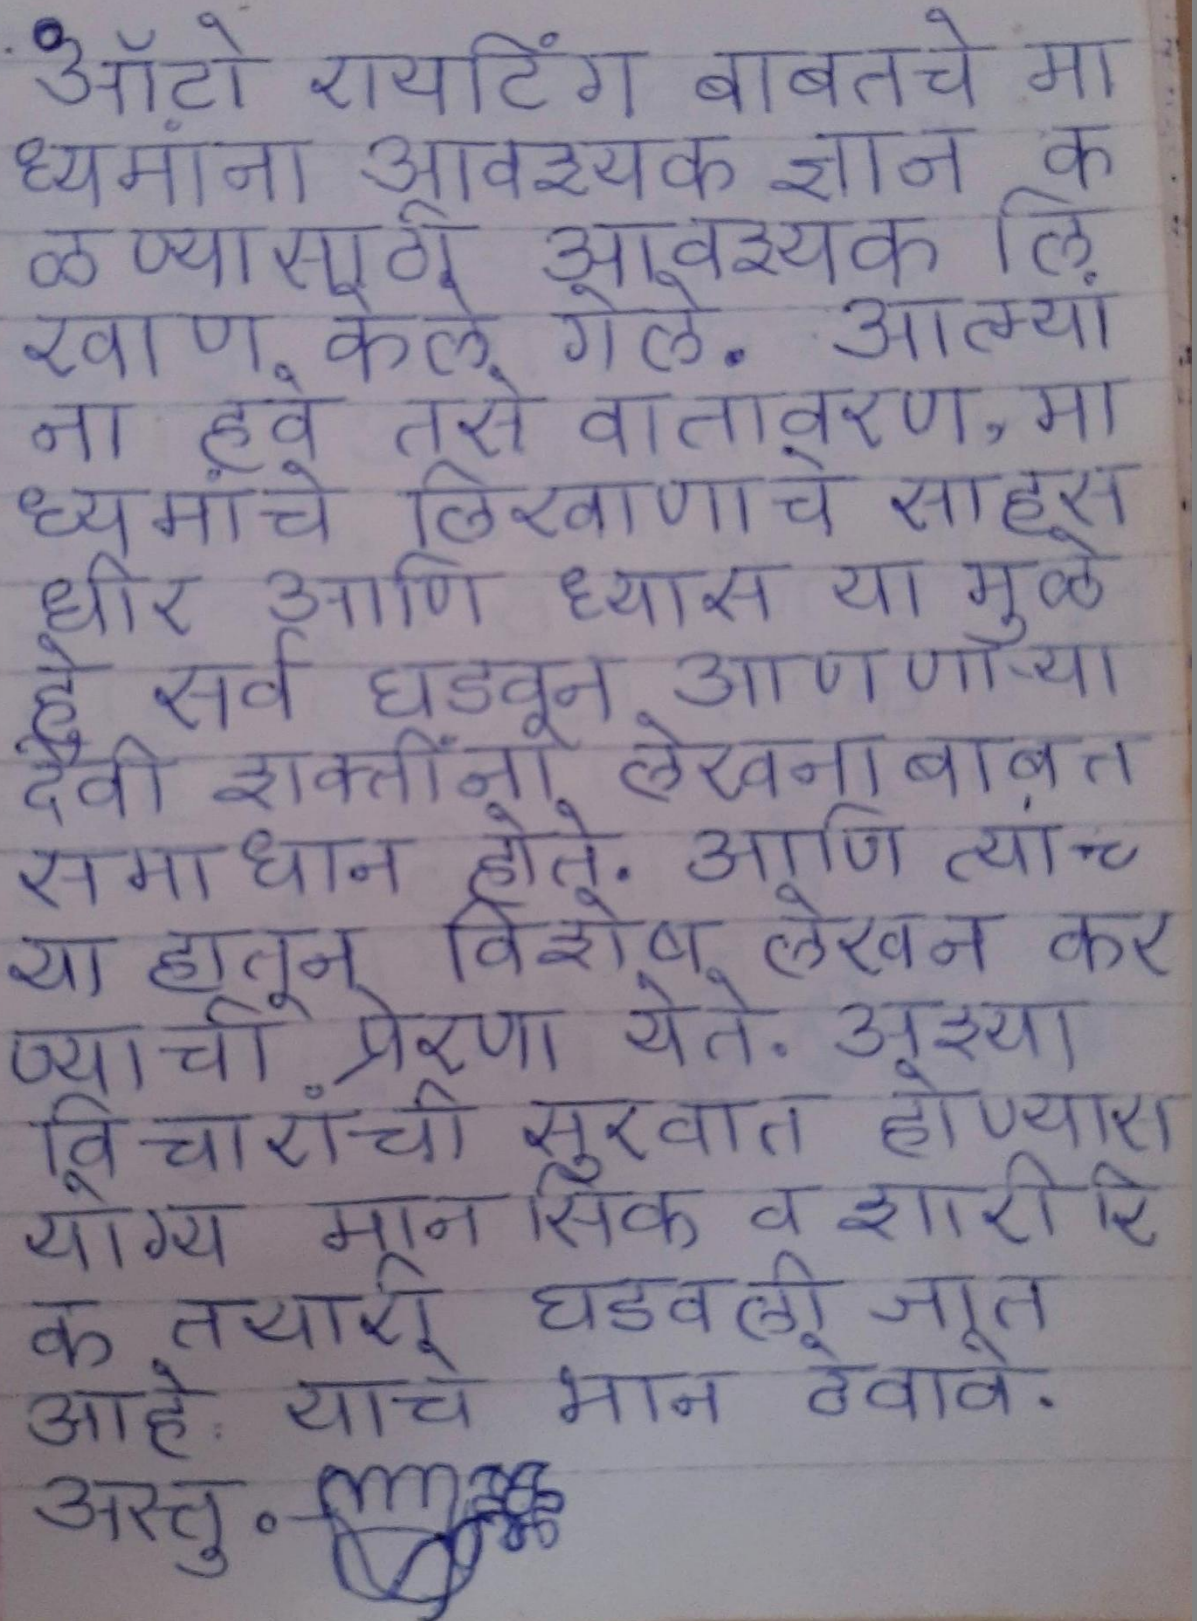 ऑटो रायटिंग बाबतचे मा
ध्यमांना आवश्यक ज्ञान क
ळण्यासाठी आवश्यक लि
खाण केले गेले. आत्म्यां
ना हवे तसे वातावरण, मा
ध्यमांचे लिखाणाचे साहस
धीर आणि ध्यास या मुळे
हे सर्व घडवून आणणाऱ्या
दैवी शक्तींना लेखनाबाबत
समाधान होते. आणि त्यांच
या हातून विशेष लेखन कर
ण्याची प्रेरणा येते. अश्या
विचारांची सुरवात होण्यास
योग्य मानसिक व शारीरि
क तयारी घडवली जात
आहे. याचे भान ठेवावे.
अस्तु.